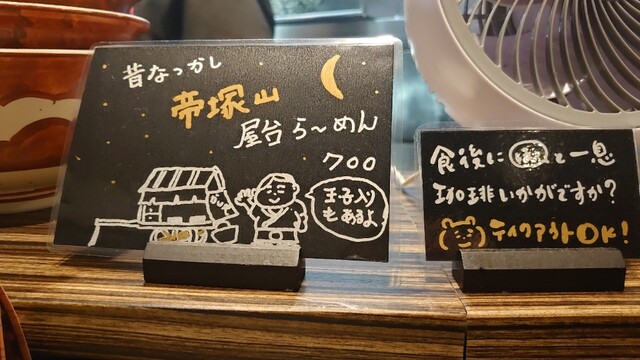 昔なつかし
帝塚山
屋台ら～めん
700
玉子入り
もあるよ
食後に ほっと一息
珈琲いかがですか?
テイクアウトOK!